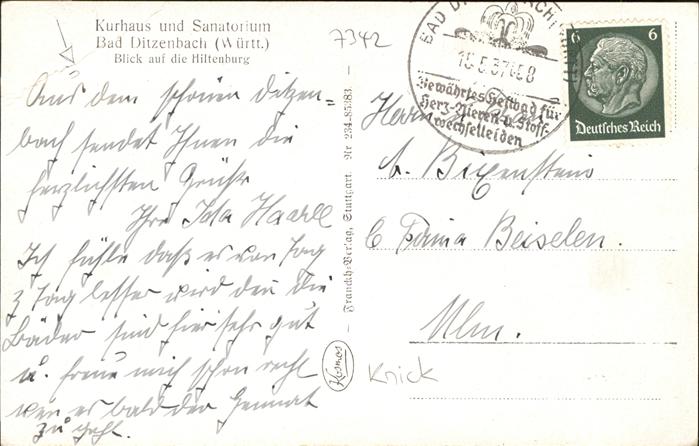 Kurhaus und Sanatorium
Bad Ditzenbach (Württ.)
Blick auf die Hiltenburg
Aus dem schönen Ditzen-
bach sendet Ihnen die
herzlichsten Grüße
Ihre Ida
Ich fühle daß es von Tag
z Tag besser wird den die
Bäder sind hier sehr gut
u. freue mich schon recht
wen es bald der Heimat
zu geht.
Franckh-Verlag, Stuttgart. Nr 234-85383
Kosmos
7342
BAD DITZENBACH
15.5.37
Bewährtes Heilbad für
Herz-Nieren-u. Stoff-
wechselleiden
6 6
Deutsches Reich
Herrn
b.
b Firma Beiselen.
Ulm.
Knick